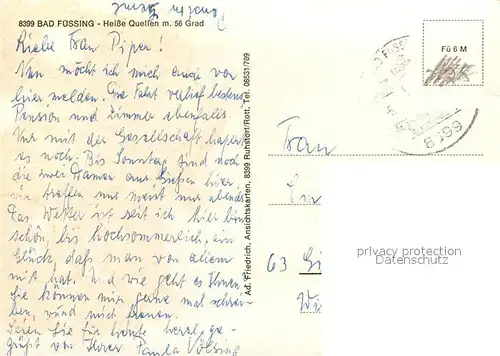 8399 BAD FÜSSING - Heiße Quellen m. 56 Grad
Liebe Frau Piper!
Nun möcht ich mich auch von
hier melden. Die Fahrt verlief bestens
Pension und Zimmer ebenfalls.
Nur mit der Gesellschaft hapert
es noch. Bis Sonntag sind noch
die zwei Damen aus Gießen hier,
wir treffen uns meist nur abends
Das Wetter ist seit ich hier bin
schön, bis hochsommerlich, ein
Glück, daß man von allem
mit hat. Und wie geht es Ihnen,
Sie können mir gerne mal schrei-
ben, würd mich freuen.
Seien Sie für heute herzl. ge-
grüßt von Ihrer Paula
Ad. Friedrich, Ansichtskarten, 8399 Ruhstorf/Rott, Tel. 08531/789
Fü 6 M
8399
Frau
Em
63 Gi
Wi
privacy protection
watermark